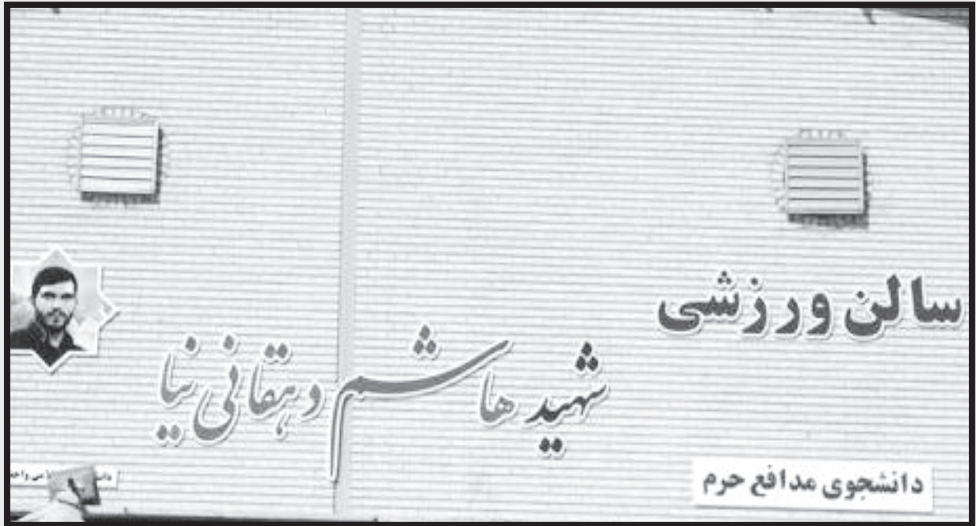 سالن ورزشی
شهید هاشم دهقانی نیا
دانشجوی مدافع حرم